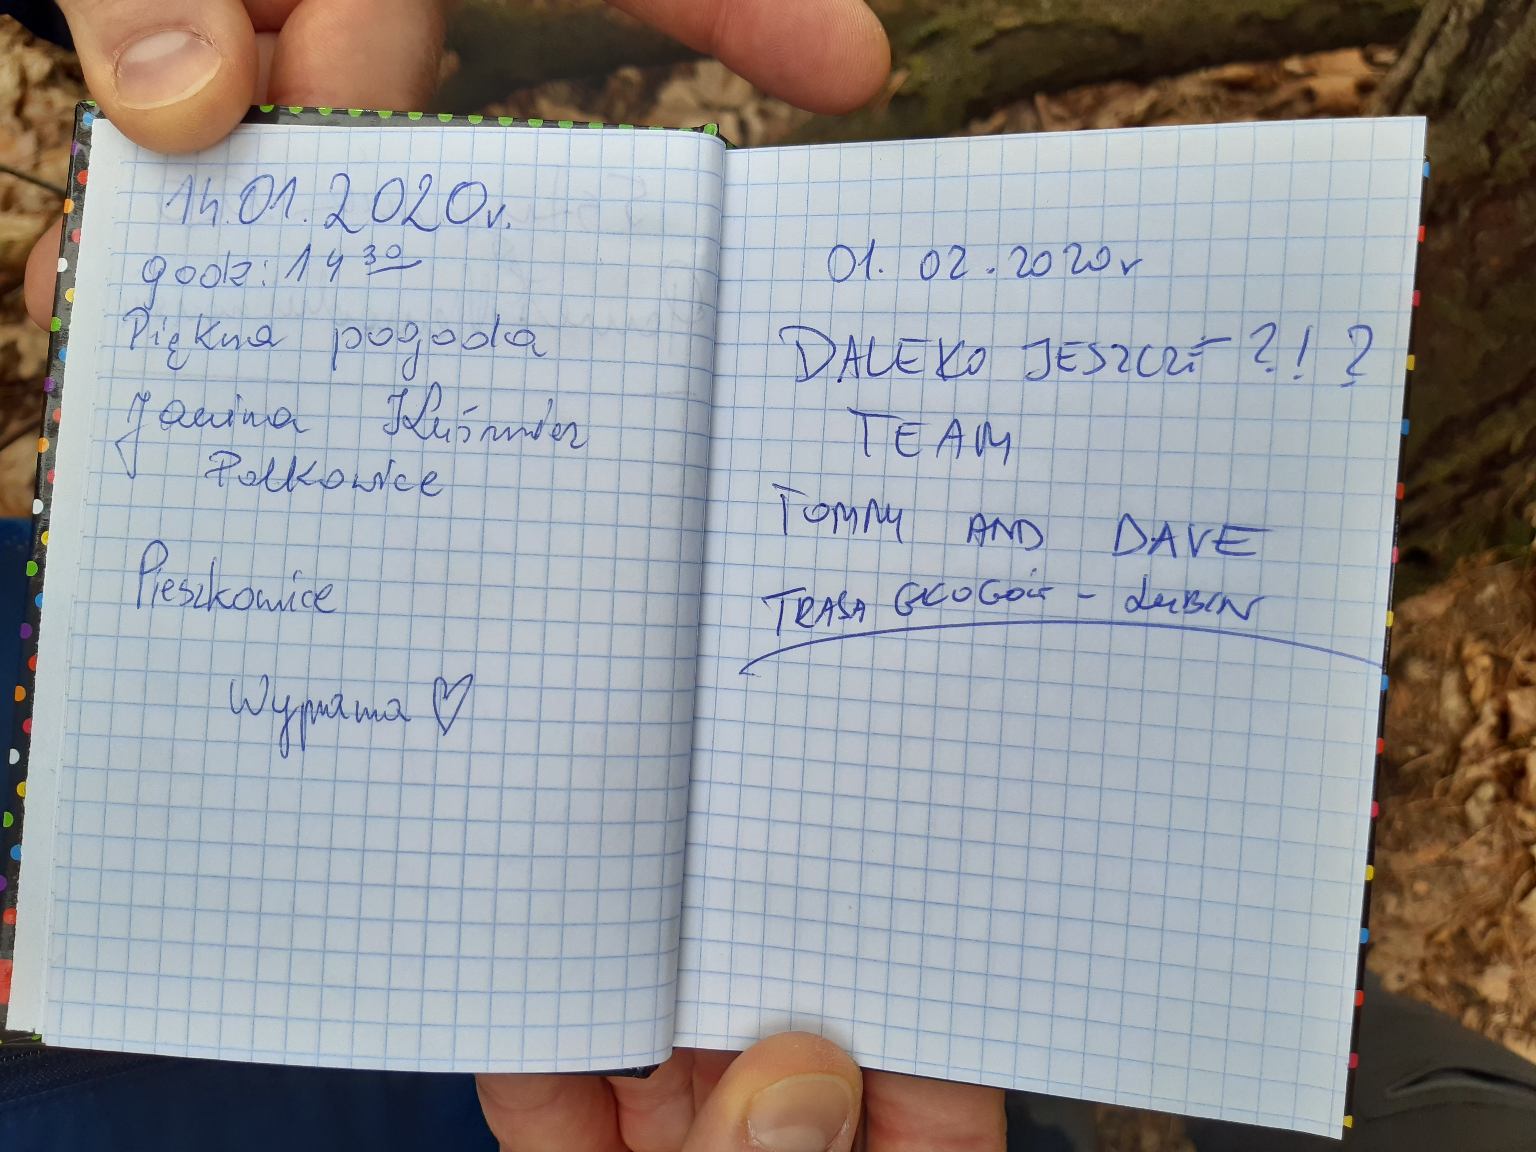 14.01.2020r.
godz: 14³⁰
Piękna pogoda
Janina Kuśnierz
Polkowice
Pieszkowice
Wyprawa ♡
01.02.2020r
DALEKO JESZCZE ?!?
TEAM
TOMMY AND DAVE
TRASA GŁOGÓW - LUBIN